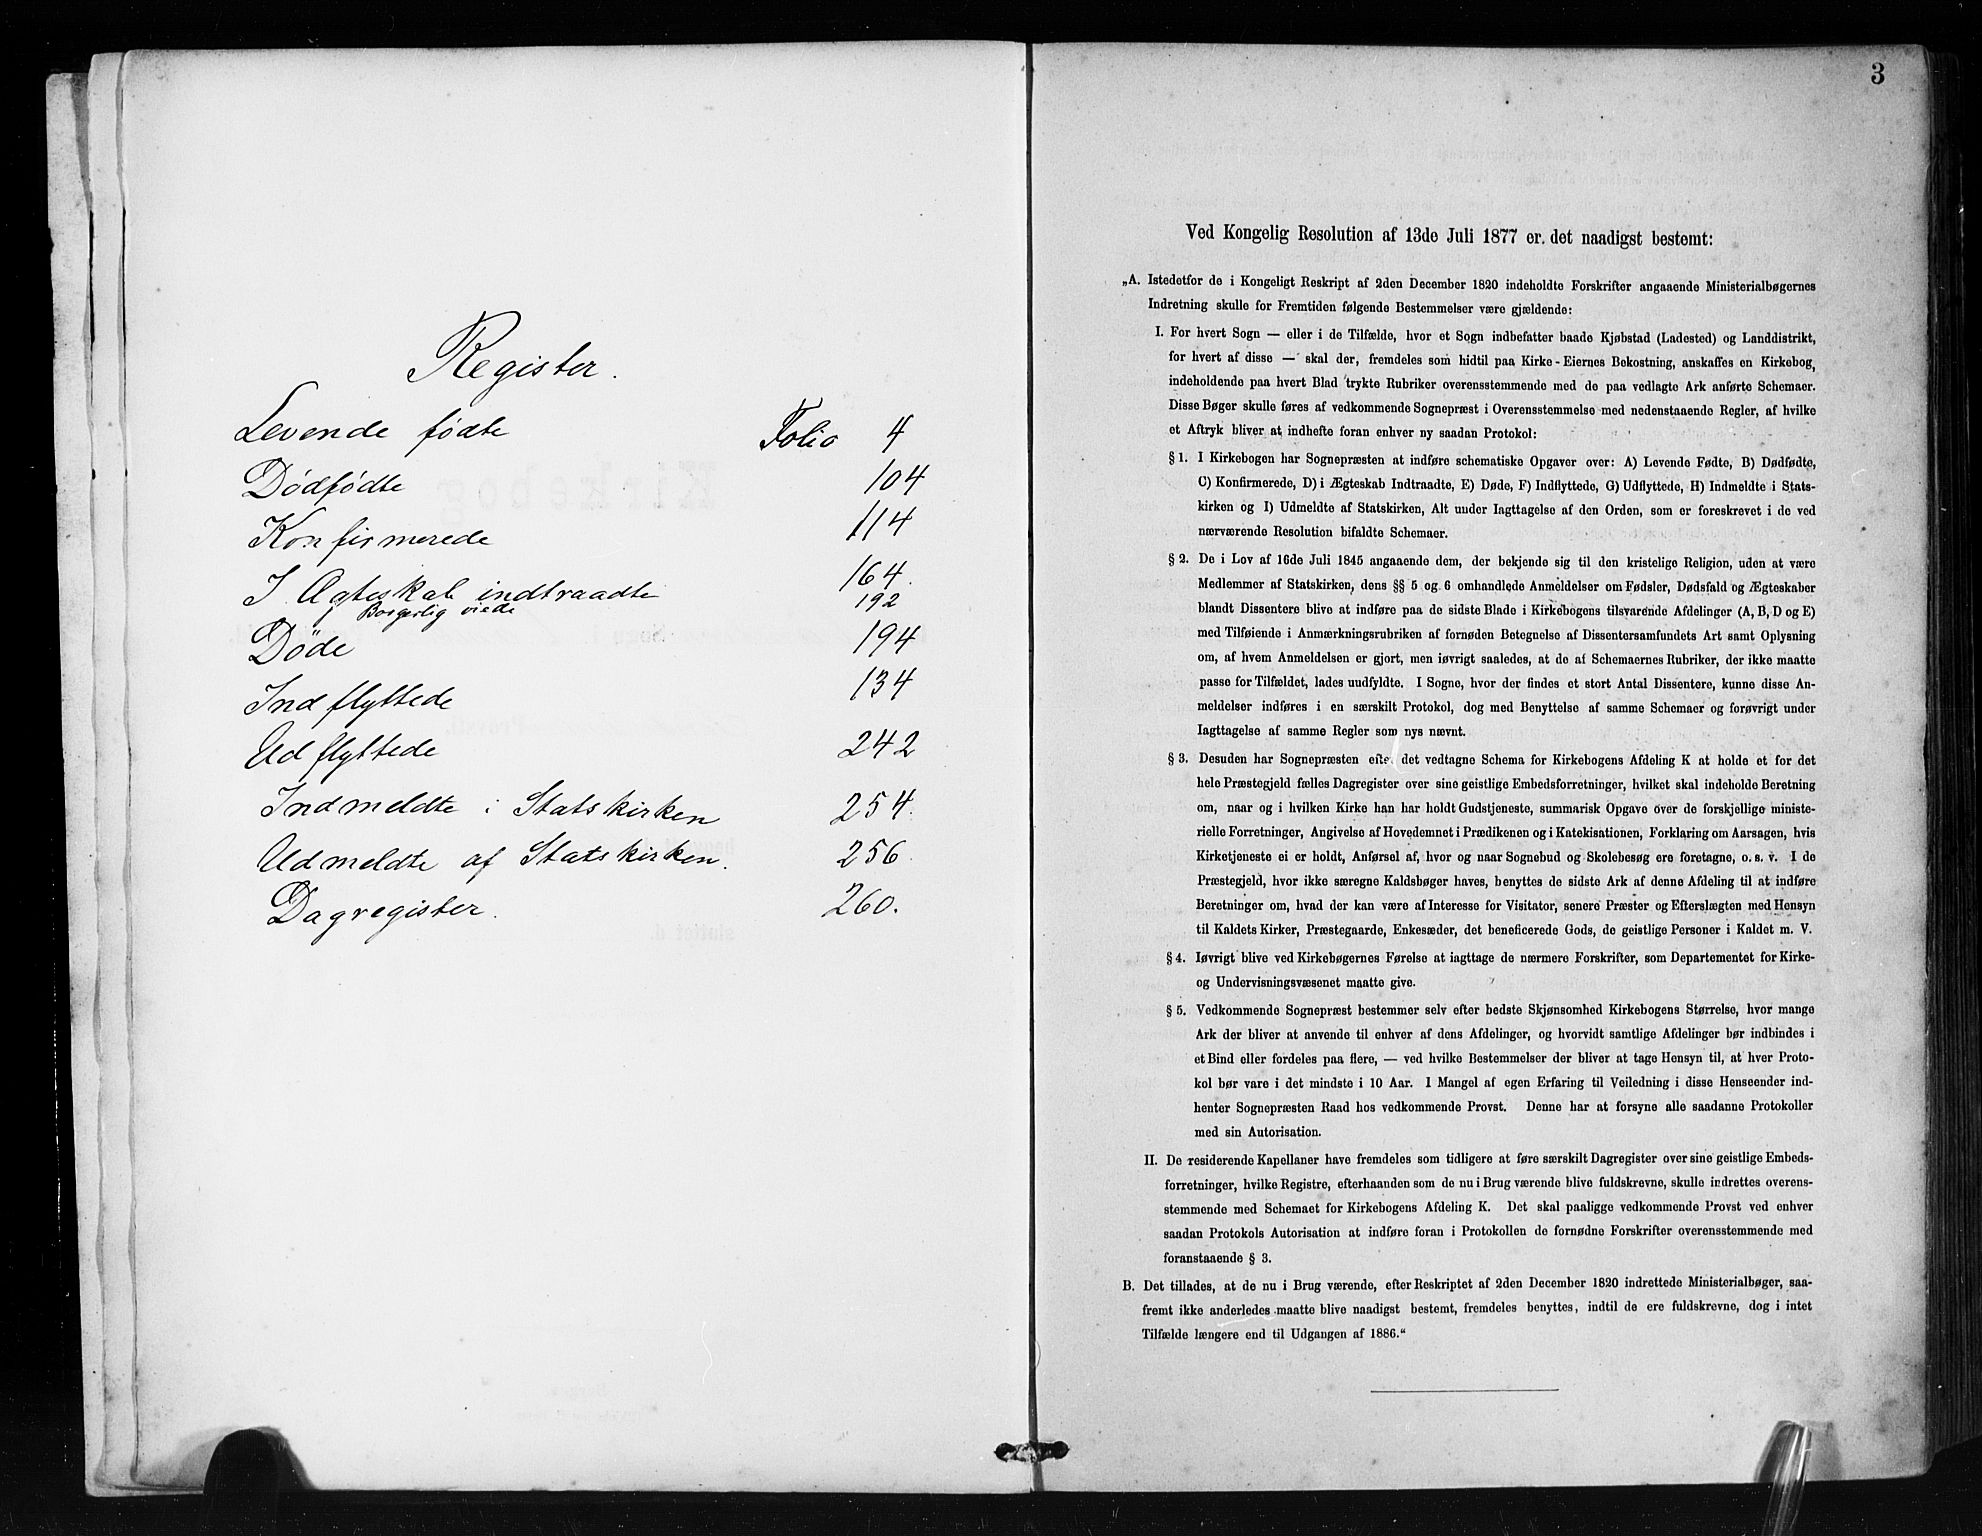 Register.
Levende fødte Folio 4
Dødfødte 104
Konfirmerede 114
I Ægteskab indtraadte 164.
Borgerlig viede 192
Døde 194
Indflyttede 134
Udflyttede 242
Indmeldte i Statskirken 254.
Udmeldte af Statskirken. 256.
Dagregister. 260.
3
Ved Kongelig Resolution af 13de Juli 1877 er det naadigst bestemt:
„A. Istedetfor de i Kongeligt Reskript af 2den December 1820 indeholdte Forskrifter angaaende Ministerialbøgernes
Indretning skulle for Fremtiden følgende Bestemmelser være gjældende:
I. For hvert Sogn — eller i de Tilfælde, hvor et Sogn indbefatter baade Kjøbstad (Ladested) og Landdistrikt,
for hvert af disse — skal der, fremdeles som hidtil paa Kirke-Eiernes Bekostning, anskaffes en Kirkebog,
indeholdende paa hvert Blad trykte Rubriker overensstemmende med de paa vedlagte Ark anførte Schemaer.
Disse Bøger skulle føres af vedkommende Sognepræst i Overensstemmelse med nedenstaaende Regler, af hvilke
et Aftryk bliver at indhefte foran enhver ny saadan Protokol:
§ 1. I Kirkebogen har Sognepræsten at indføre schematiske Opgaver over: A) Levende Fødte, B) Dødfødte,
C) Konfirmerede, D) i Ægteskab Indtraadte, E) Døde, F) Indflyttede, G) Udflyttede, H) Indmeldte i Stats-
kirken og I) Udmeldte af Statskirken, Alt under Iagttagelse af den Orden, som er foreskrevet i de ved
nærværende Resolution bifaldte Schemaer.
§ 2. De i Lov af 16de Juli 1845 angaaende dem, der bekjende sig til den kristelige Religion, uden at være
Medlemmer af Statskirken, dens §§ 5 og 6 omhandlede Anmeldelser om Fødsler, Dødsfald og Ægteskaber
blandt Dissentere blive at indføre paa de sidste Blade i Kirkebogens tilsvarende Afdelinger (A, B, D og E)
med Tilføiende i Anmærkningsrubriken af fornøden Betegnelse af Dissentersamfundets Art samt Oplysning
om, af hvem Anmeldelsen er gjort, men iøvrigt saaledes, at de af Schemaernes Rubriker, der ikke maatte
passe for Tilfældet, lades uudfyldte. I Sogne, hvor der findes et stort Antal Dissentere, kunne disse An-
meldelser indføres i en særskilt Protokol, dog med Benyttelse af samme Schemaer og forøvrigt under
Iagttagelse af samme Regler som nys nævnt.
§ 3. Desuden har Sognepræsten efter det vedtagne Schema for Kirkebogens Afdeling K at holde et for det
hele Præstegjeld fælles Dagregister over sine geistlige Embedsforretninger, hvilket skal indeholde Beretning
om, naar og i hvilken Kirke han har holdt Gudstjeneste, summarisk Opgave over de forskjellige ministe-
rielle Forretninger, Angivelse af Hovedemnet i Prædikenen og i Katekisationen, Forklaring om Aarsagen, hvis
Kirketjeneste ei er holdt, Anførsel af, hvor og naar Sognebud og Skolebesøg ere foretagne, o. s. v. I de
Præstegjeld, hvor ikke særegne Kaldsbøger haves, benyttes de sidste Ark af denne Afdeling til at indføre
Beretninger om, hvad der kan være af Interesse for Visitator, senere Præster og Efterslægten med Hensyn
til Kaldets Kirker, Præstegaarde, Enkesæder, det beneficerede Gods, de geistlige Personer i Kaldet m. V.
§ 4. Iøvrigt blive ved Kirkebøgernes Førelse at iagttage de nærmere Forskrifter, som Departementet for Kirke-
og Undervisningsvæsenet maatte give.
§ 5. Vedkommende Sognepræst bestemmer selv efter bedste Skjønsomhed Kirkebogens Størrelse, hvor mange
Ark der bliver at anvende til enhver af dens Afdelinger, og hvorvidt samtlige Afdelinger bør indbindes i
et Bind eller fordeles paa flere, — ved hvilke Bestemmelser der bliver at tage Hensyn til, at hver Proto-
kol bør vare i det mindste i 10 Aar. I Mangel af egen Erfaring til Veiledning i disse Henseender ind-
henter Sognepræsten Raad hos vedkommende Provst. Denne har at forsyne alle saadanne Protokoller
med sin Autorisation.
II. De residerende Kapellaner have fremdeles som tidligere at føre særskilt Dagregister over sine geistlige Embeds-
forretninger, hvilke Registre, efterhaanden som de nu i Brug værende blive fuldskrevne, skulle indrettes overens-
stemmende med Schemaet for Kirkebogens Afdeling K. Det skal paaligge vedkommende Provst ved enhver
saadan Protokols Autorisation at indføre foran i Protokollen de fornødne Forskrifter overensstemmende med
foranstaaende § 3.
B. Det tillades, at de nu i Brug værende, efter Reskriptet af 2den December 1820 indrettede Ministerialbøger, saa-
fremt ikke anderledes maatte blive naadigst bestemt, fremdeles benyttes, indtil de ere fuldskrevne, dog i intet
Tilfælde længere end til Udgangen af 1886.“